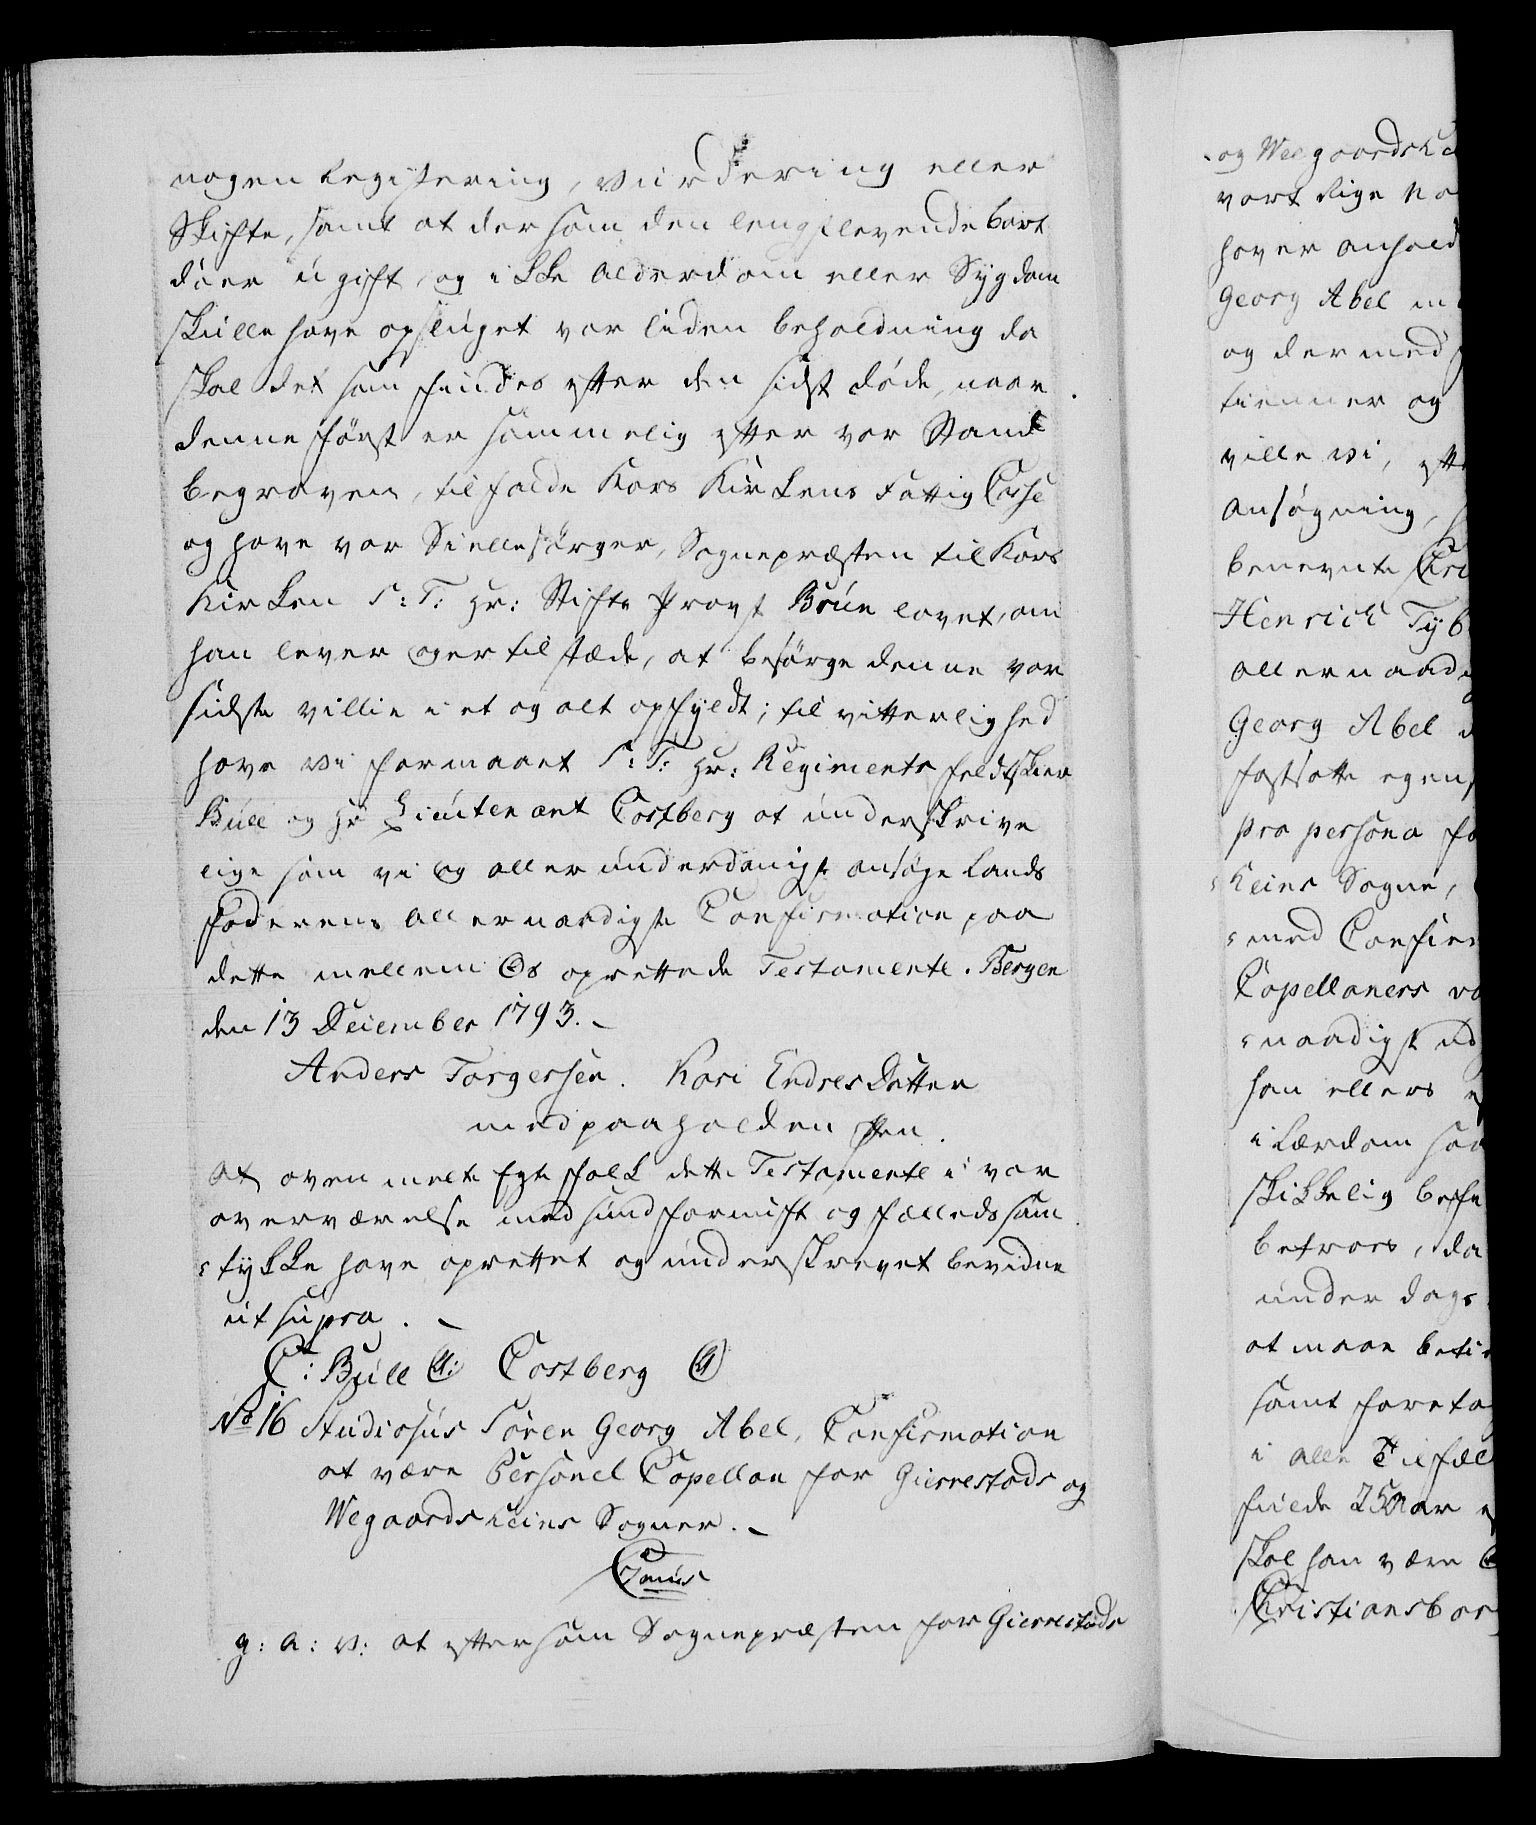 nogen Registering, Vurdering eller
Skifte, samt at dersom den lengstlevende bort
döer ugift, og ikke Alderdom eller Sygdom
skulle have opsluget vor liden beholdning da
skal det som findes efter den sidst döde, naar
denne först er sömmelig efter vor Stand
begraven, tilfalde Kors Kirkens Fattig Casse
og have vor Siellesörger, Sognepræsten til Kors
Kirken S: T: Hr: Stifts Provst Brun lovet, om
han lever og er tilstæde, at besörge denne vor
sidste villie i et og alt opfyldt; til vitterlighed
have vi formaaet S: T: Hr: Regiments feldtskier
Bull og Hr Lieutenant Costberg at underskrive
lige som vi og allerunderdanigst ansöge Lands
Faderens Allernaadigste Confirmation paa
dette mellem Os oprettede Testamente. Bergen
den 13 December 1793.
Anders Torgersen. Kari Endres Datter
med paaholden Pen.
At ovenmelte Egtefolk dette Testamente i vor
overværelse med sund fornuft og fælleds sam
tykke have oprettet og underskrevet bevidne
ut supra.
C: Bull Costberg
No 16 Studiosus Sören Georg Abel, Confirmation
at være Personel Capellan for Gierrestads og
Wegaardsheins Sogner.
g: a: v: at eftersom Sognepræsten for Gierrestads
og Weegaardshe
vort Rige No
haver anhold
Georg Abel m
og dermed
tienner og
ville vi, eft
ansögning,
benevnte
Henrich Tyb
allernaadi
Georg Abel
fastsatte egen
pro persona fo
heins Sogne,
med Confir
Capellaners
naadigst ud
han ellers
i Lærdom saa
skikkelig befi
betroes, da
under dags
at maae beti
samt foreta
i alle Tilfæl
fulde 25 Aar
skal han være
Christiansbor